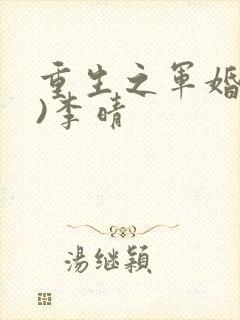 重生之军婚
)李晴
湯继颖